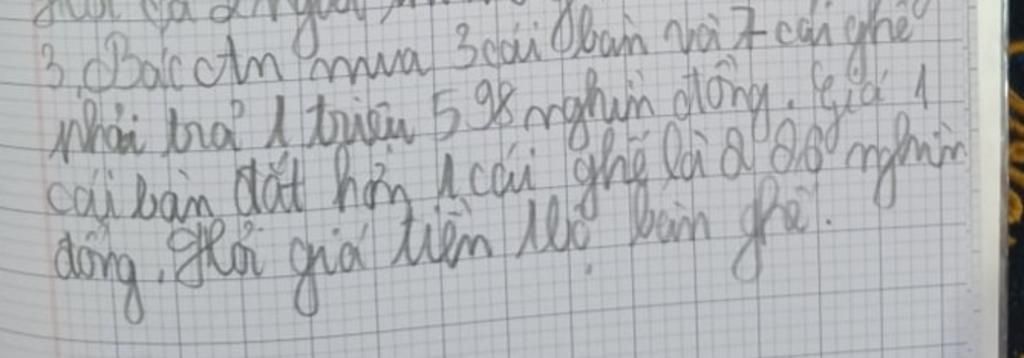 Hỏi cả 2 người
3, Bác An mua 3 cái bàn và 7 cái ghế
phải trả 1 triệu 598 nghìn đồng. Giá 1
cái bàn đắt hơn 1 cái ghế là 200 nghìn
đồng. Hỏi giá tiền 1 bộ bàn ghế.